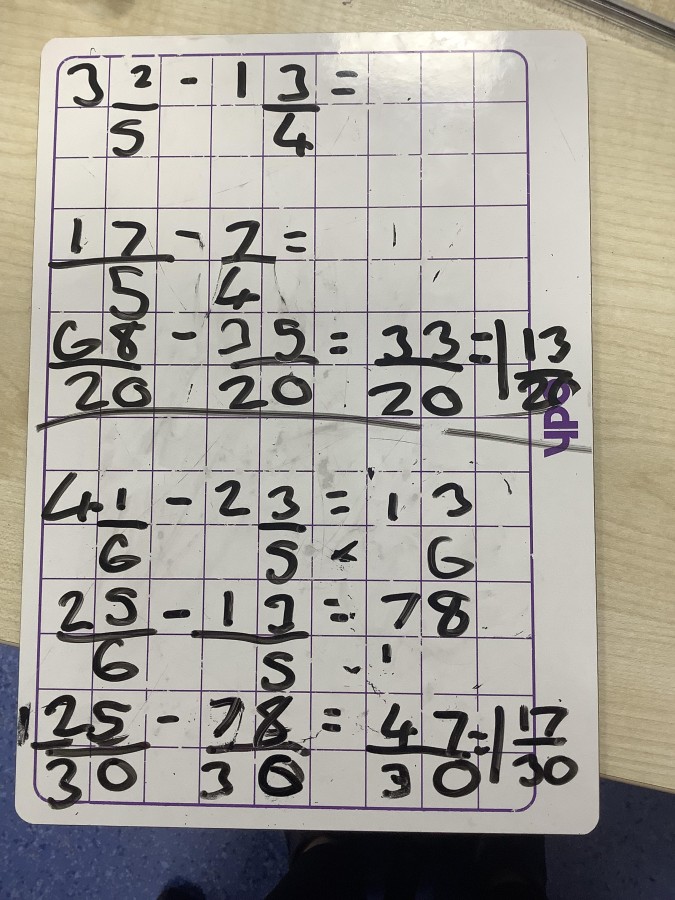 3 2/5 - 1 3/4 =
17/5 - 7/4 =
68/20 - 35/20 = 33/20 = 1 13/20
4 1/6 - 2 3/5 = 13
× 6
25/6 - 13/5 = 78
1
125/30 - 78/30 = 47/30 = 1 17/30